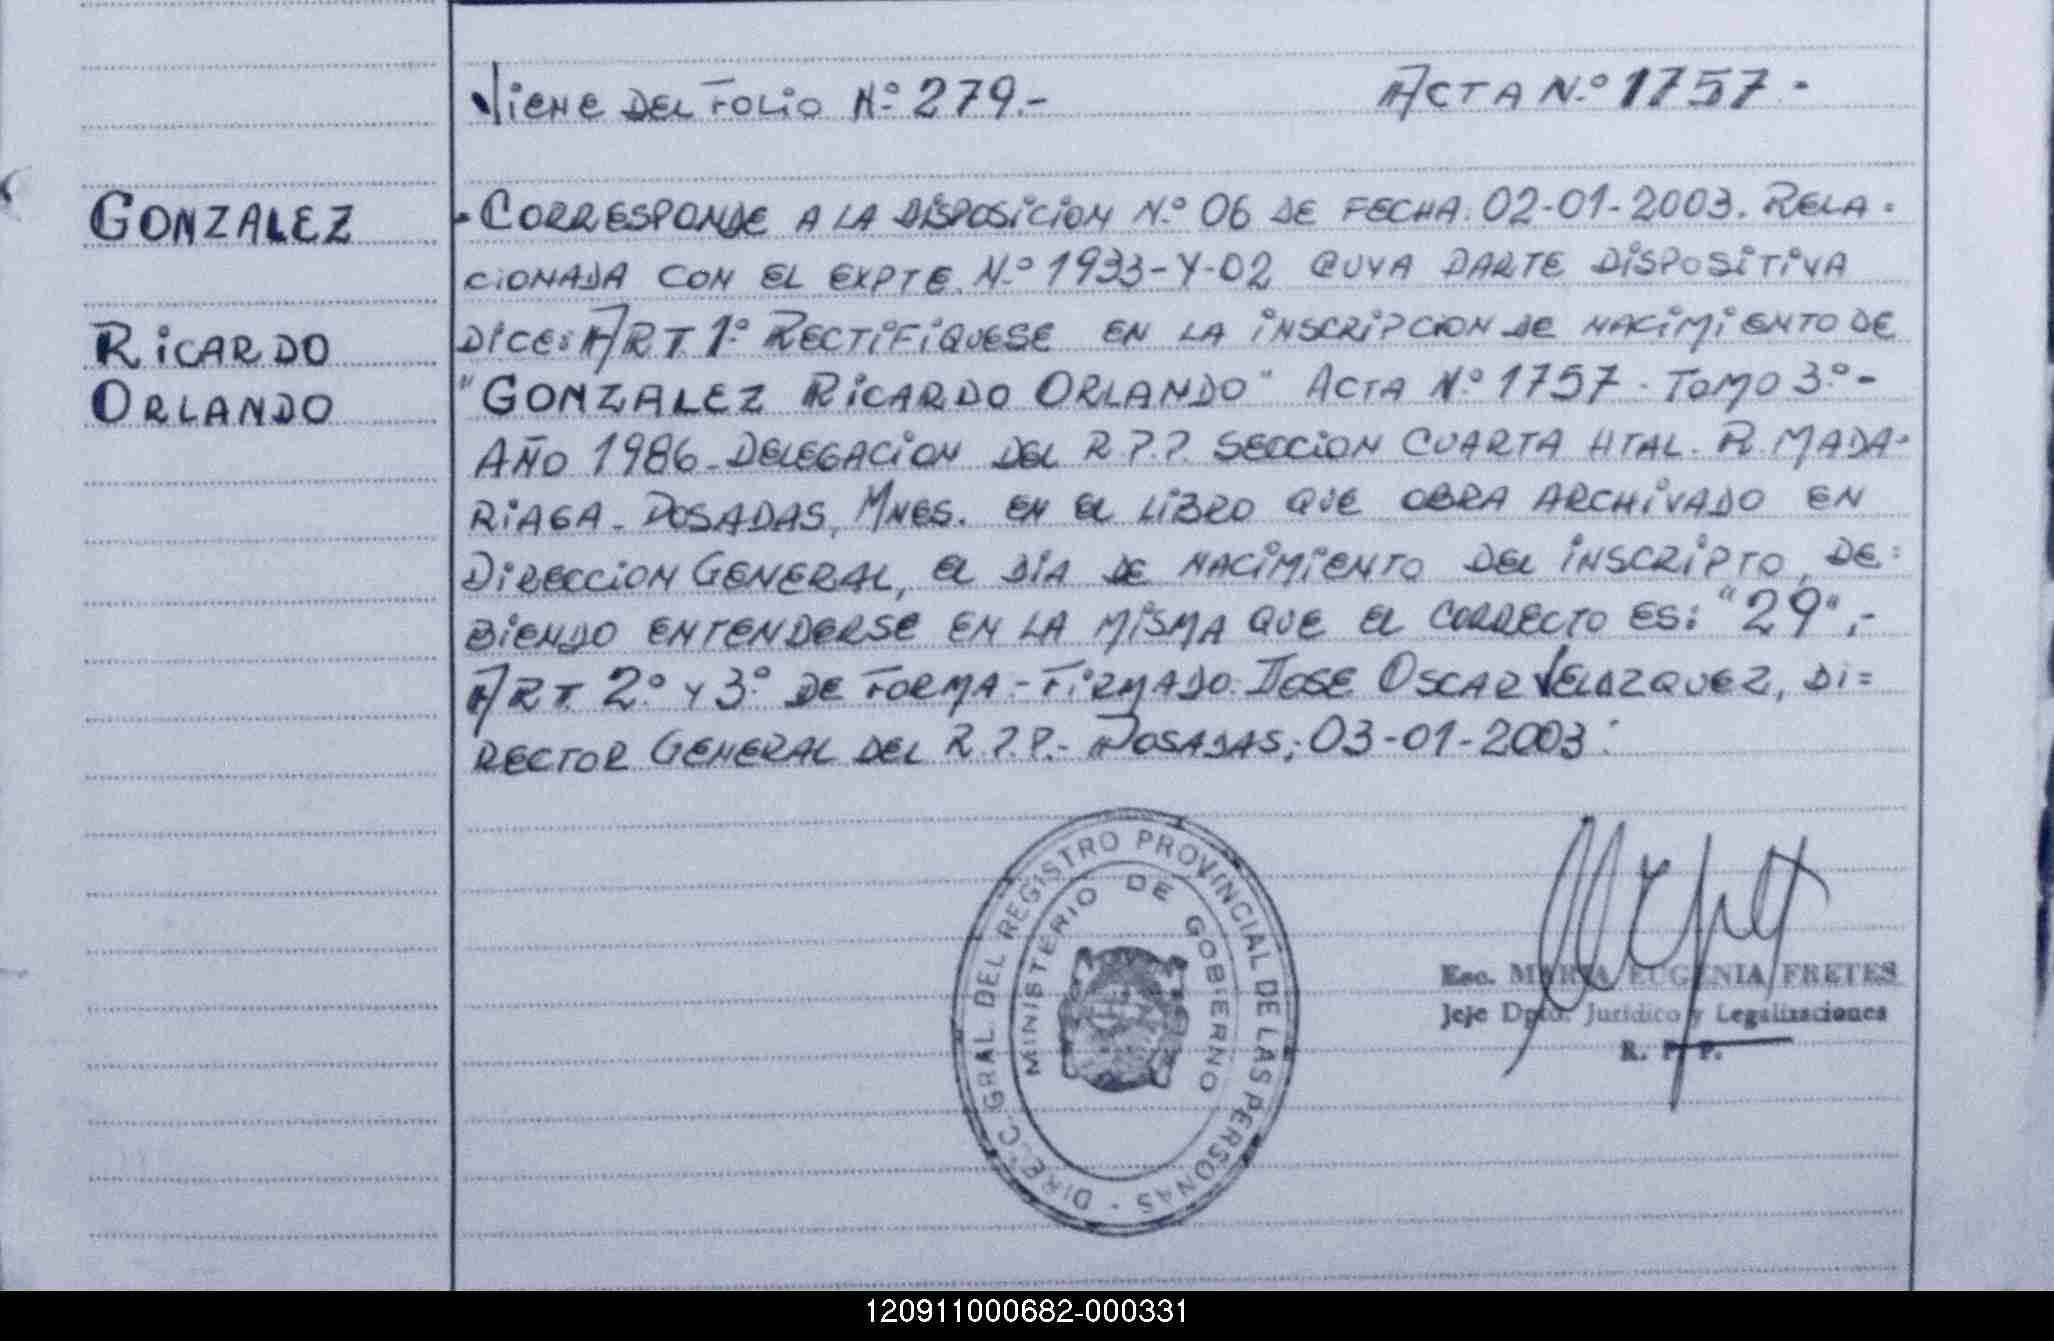 Viene del Folio N.º 279.- Acta N.º 1757.-
GONZALEZ
RICARDO
ORLANDO
- CORRESPONDE A LA DISPOSICION N.º 06 DE FECHA 02-01-2003. RELA-
CIONADA CON EL EXPTE. N.º 1933-Y-02 CUYA PARTE DISPOSITIVA
DICE: ART. 1.º RECTIFIQUESE EN LA INSCRIPCION DE NACIMIENTO DE
"GONZALEZ RICARDO ORLANDO" ACTA N.º 1757. TOMO 3.º-
AÑO 1986- DELEGACION DEL R.P.P. SECCION CUARTA HTAL. R. MADA-
RIAGA- POSADAS, MNES. EN EL LIBRO QUE OBRA ARCHIVADO EN
DIRECCION GENERAL, EL DIA DE NACIMIENTO DEL INSCRIPTO, DE=
BIENDO ENTENDERSE EN LA MISMA QUE EL CORRECTO ES: "29".-
ART. 2.º Y 3.º DE FORMA- FIRMADO: JOSE OSCAR VELAZQUEZ, DI=
RECTOR GENERAL DEL R.P.P.- POSADAS, 03-01-2003.
DIRECC. GRAL. DEL REGISTRO PROVINCIAL DE LAS PERSONAS -
MINISTERIO DE GOBIERNO
Esc. MARIA EUGENIA FRETES
Jefe Dpto. Jurídico y Legalizaciones
R. P. P.
120911000682-000331